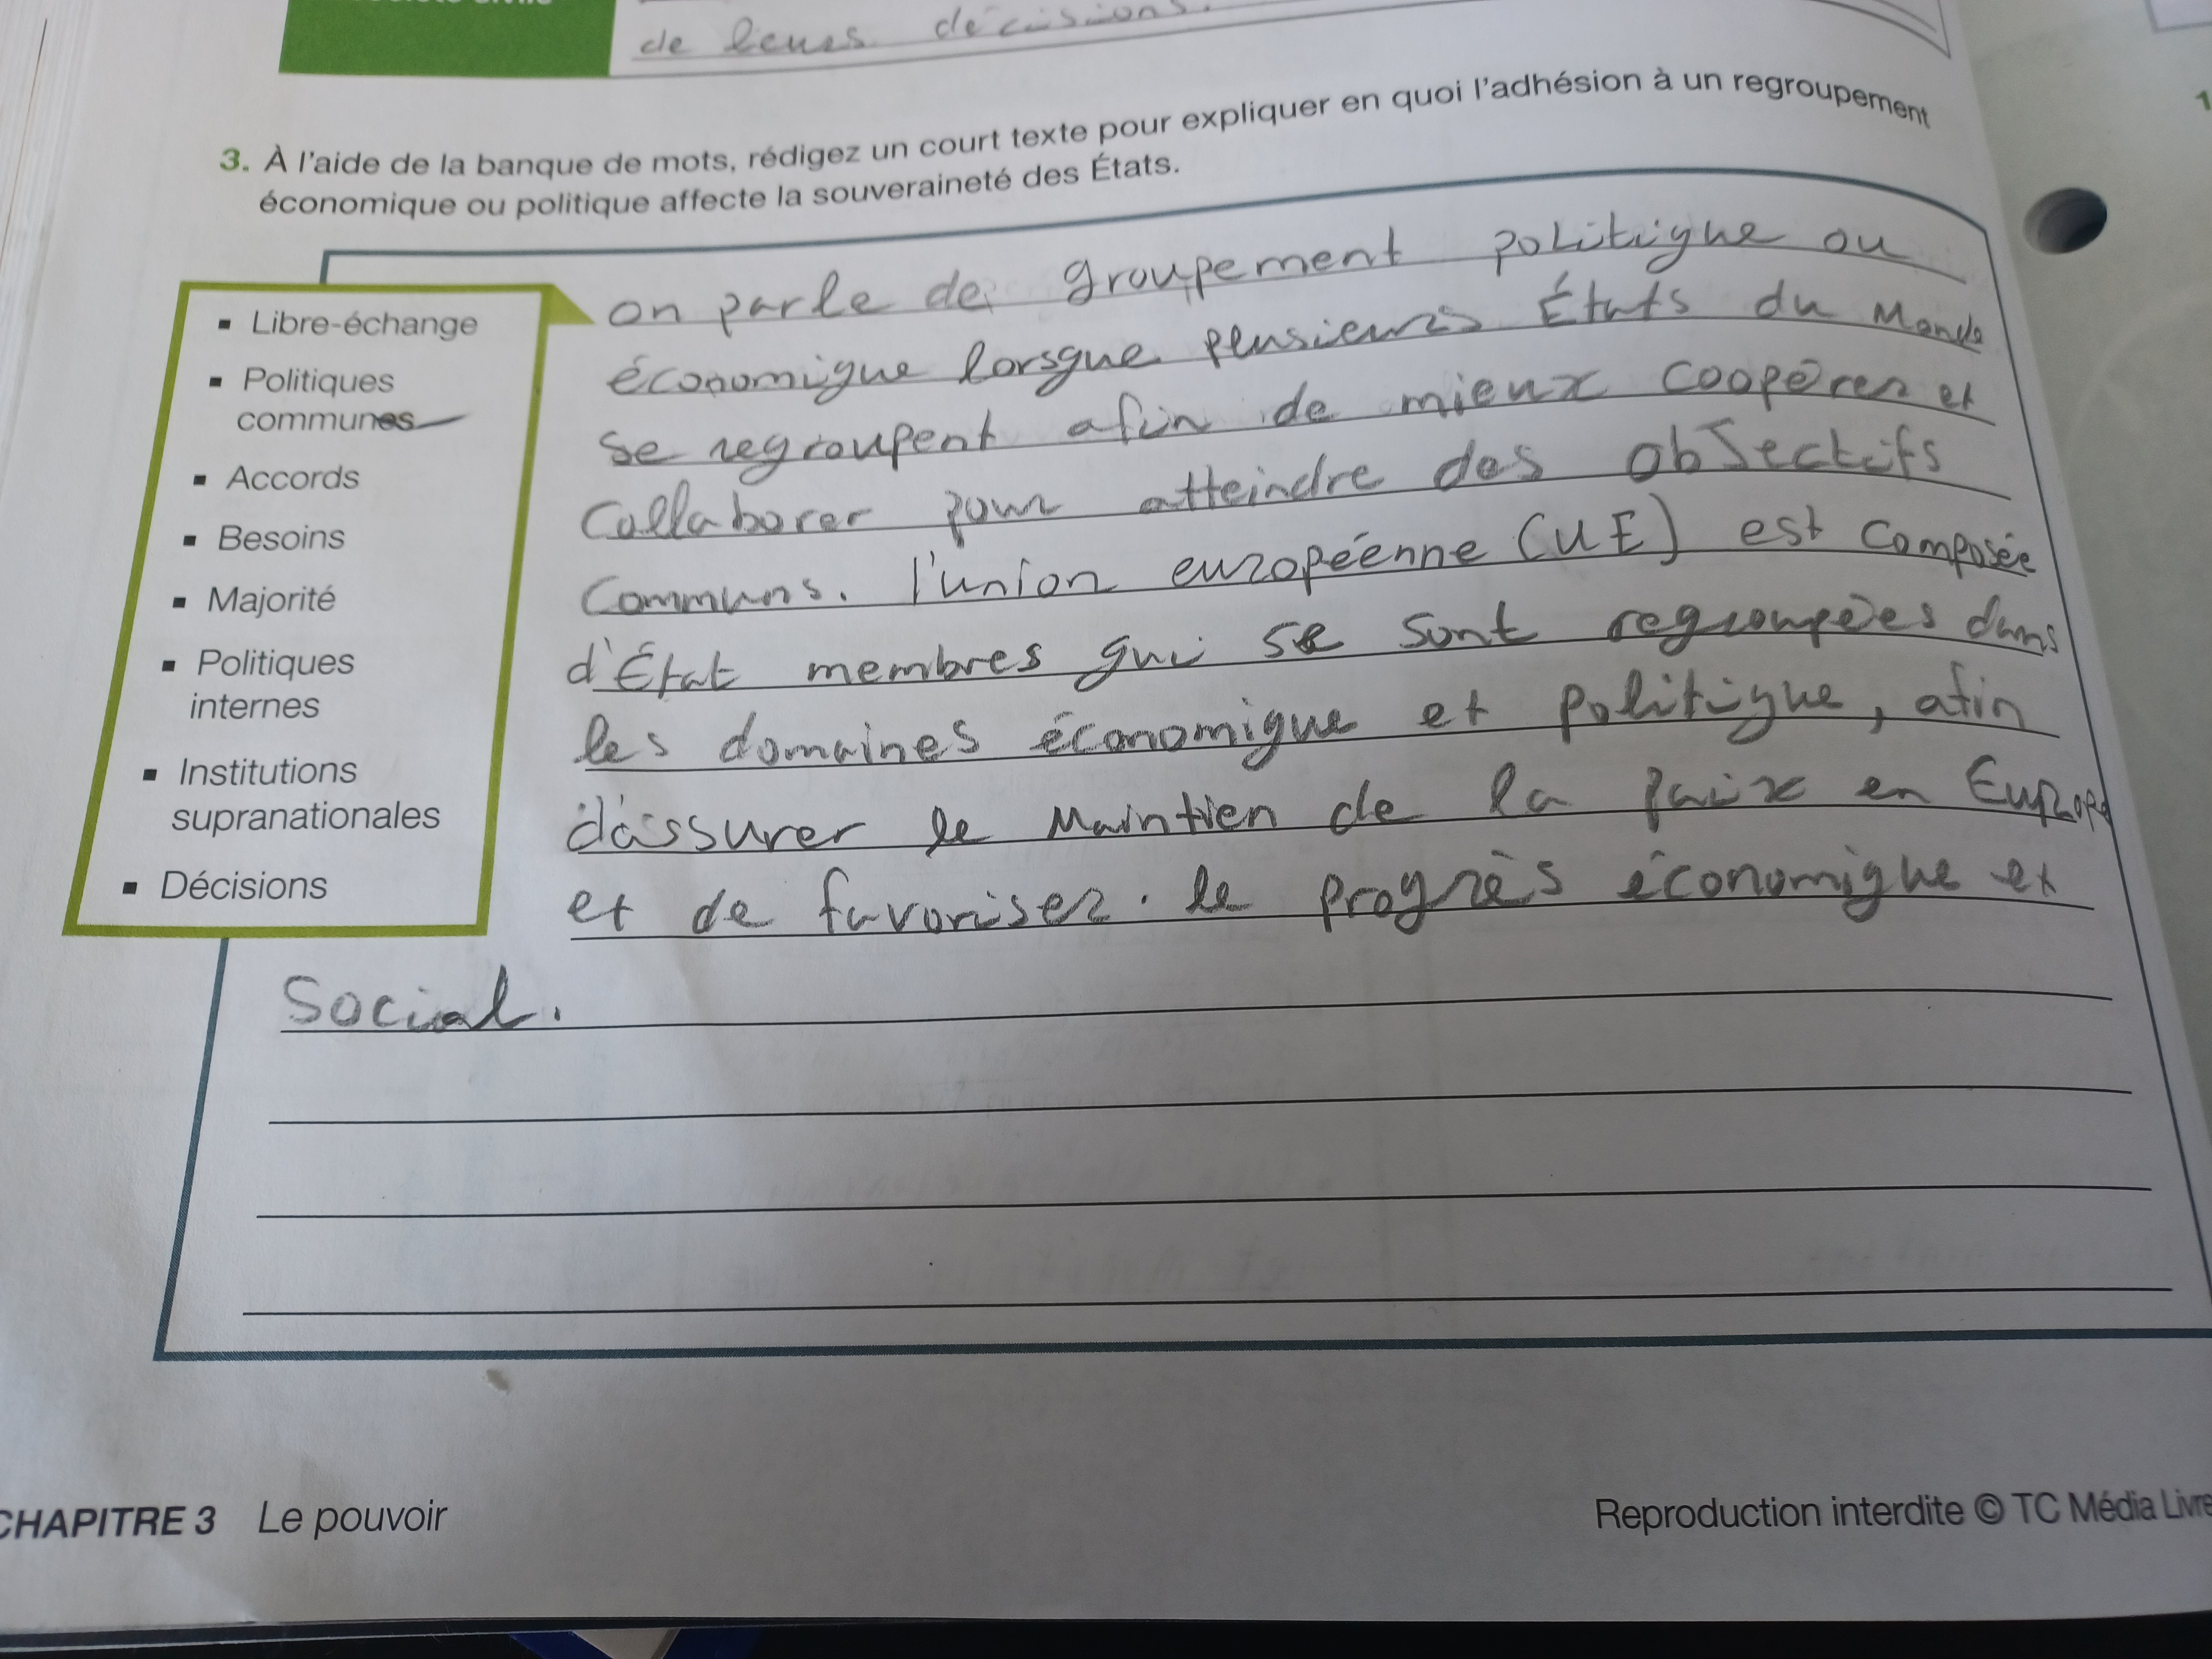 de leurs décisions.
3. À l'aide de la banque de mots, rédigez un court texte pour expliquer en quoi l'adhésion à un regroupement
économique ou politique affecte la souveraineté des États.
▪ Libre-échange
▪ Politiques
communes
▪ Accords
▪ Besoins
▪ Majorité
▪ Politiques
internes
▪ Institutions
supranationales
▪ Décisions
on parle de groupement politique ou
économique lorsque plusieurs États du Monde
se regroupent afin de mieux coopérer et
Collaborer pour atteindre des objectifs
Communs. l'union européenne (UE) est Composée
d'État membres qui se sont regroupées dans
les domaines économique et politique, afin
d'assurer le Maintien de la paix en Europe
et de favoriser. le progrès économique et
Social.
CHAPITRE 3 Le pouvoir
Reproduction interdite © TC Média Livre
1